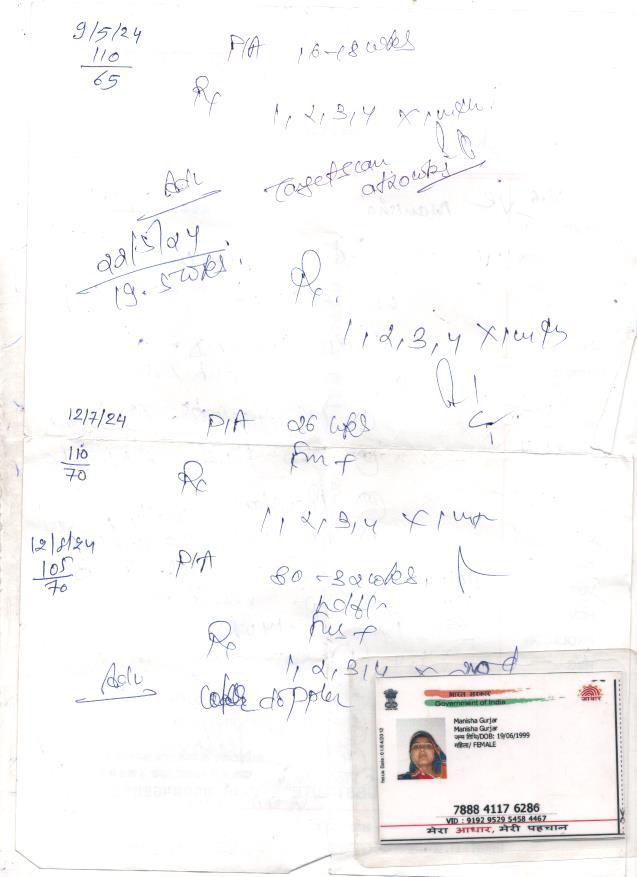 9/5/24
110
65
P/A 16-18 wks
Rx
1, 2, 3, 4 x 1 mth
Adv Target scan
at 20 wks
22/5/24
19.5 wks
Rx
1, 2, 3, 4 x 1 mth
12/7/24
P/A 26 wks
110
70
Rx
1, 2, 3, 4 x 1 mth
12/8/24
105
70
P/A
30-32 wks
Rx
1, 2, 3, 4 x 20 d
Adv doppler
भारत सरकार
Government of India
आधार
Issue Date: 01/04/2012
Manisha Gurjar
Manisha Gurjar
जन्म तिथि/DOB: 19/06/1999
महिला/ FEMALE
7888 4117 6286
VID : 9192 9529 5458 4467
मेरा आधार, मेरी पहचान